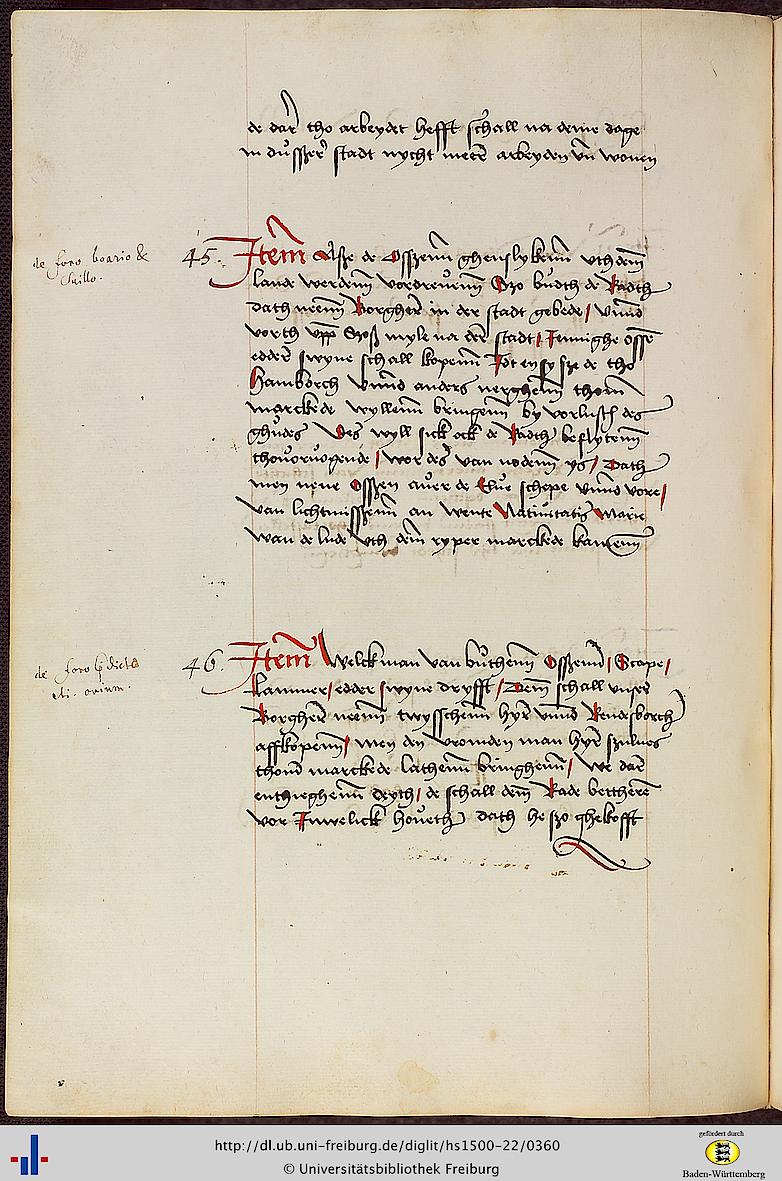 de dar tho arbeydet hefft schall na deme dage
in dusser stadt nycht meer arbeyden vn wonen
de foro boario &
suillo.
45. Item Alße de Osszenn ghenslykenn vth dem
lande werdenn vordreuenn Szo budth de Radth
dath nenn Borgher in der stadt gebede / vnnd
vorth vpp Soß myle na der stadt / Jennighe osse
edder swyne schall kopenn Jdt en sy sze de tho
Hamborch vnnd anders nerghenn thom
marckede wyllenn bringenn by vorlust des
ghudes Des wyll sick ock de Radth beflytenn
thouoruogende / wor des van nodenn ys / Dath
men nene Ossen auer de Elue schepe vnnd vore /
van lichtmissenn an wente Natiuitatis Marie
wan de lude vth dem ryper marckede kamenn
de foro
ouium.
46. Item Welck man van buthenn Osszenn / Scape /
Lammer / edder swyne dryfft / Dem schall vnse
Borgher nenn twysschenn hyr vnnd Rendesborch
affkopenn / men den vromden man hyr sulues
thom marckede lathenn bringhenn / We dar
enthieghenn deyth / de schall dem Rade betteren
vor Juwelick houeth dath he szo ghekofft
http://dl.ub.uni-freiburg.de/diglit/hs1500-22/0360
© Universitätsbibliothek Freiburg
gefördert durch
Baden-Württemberg